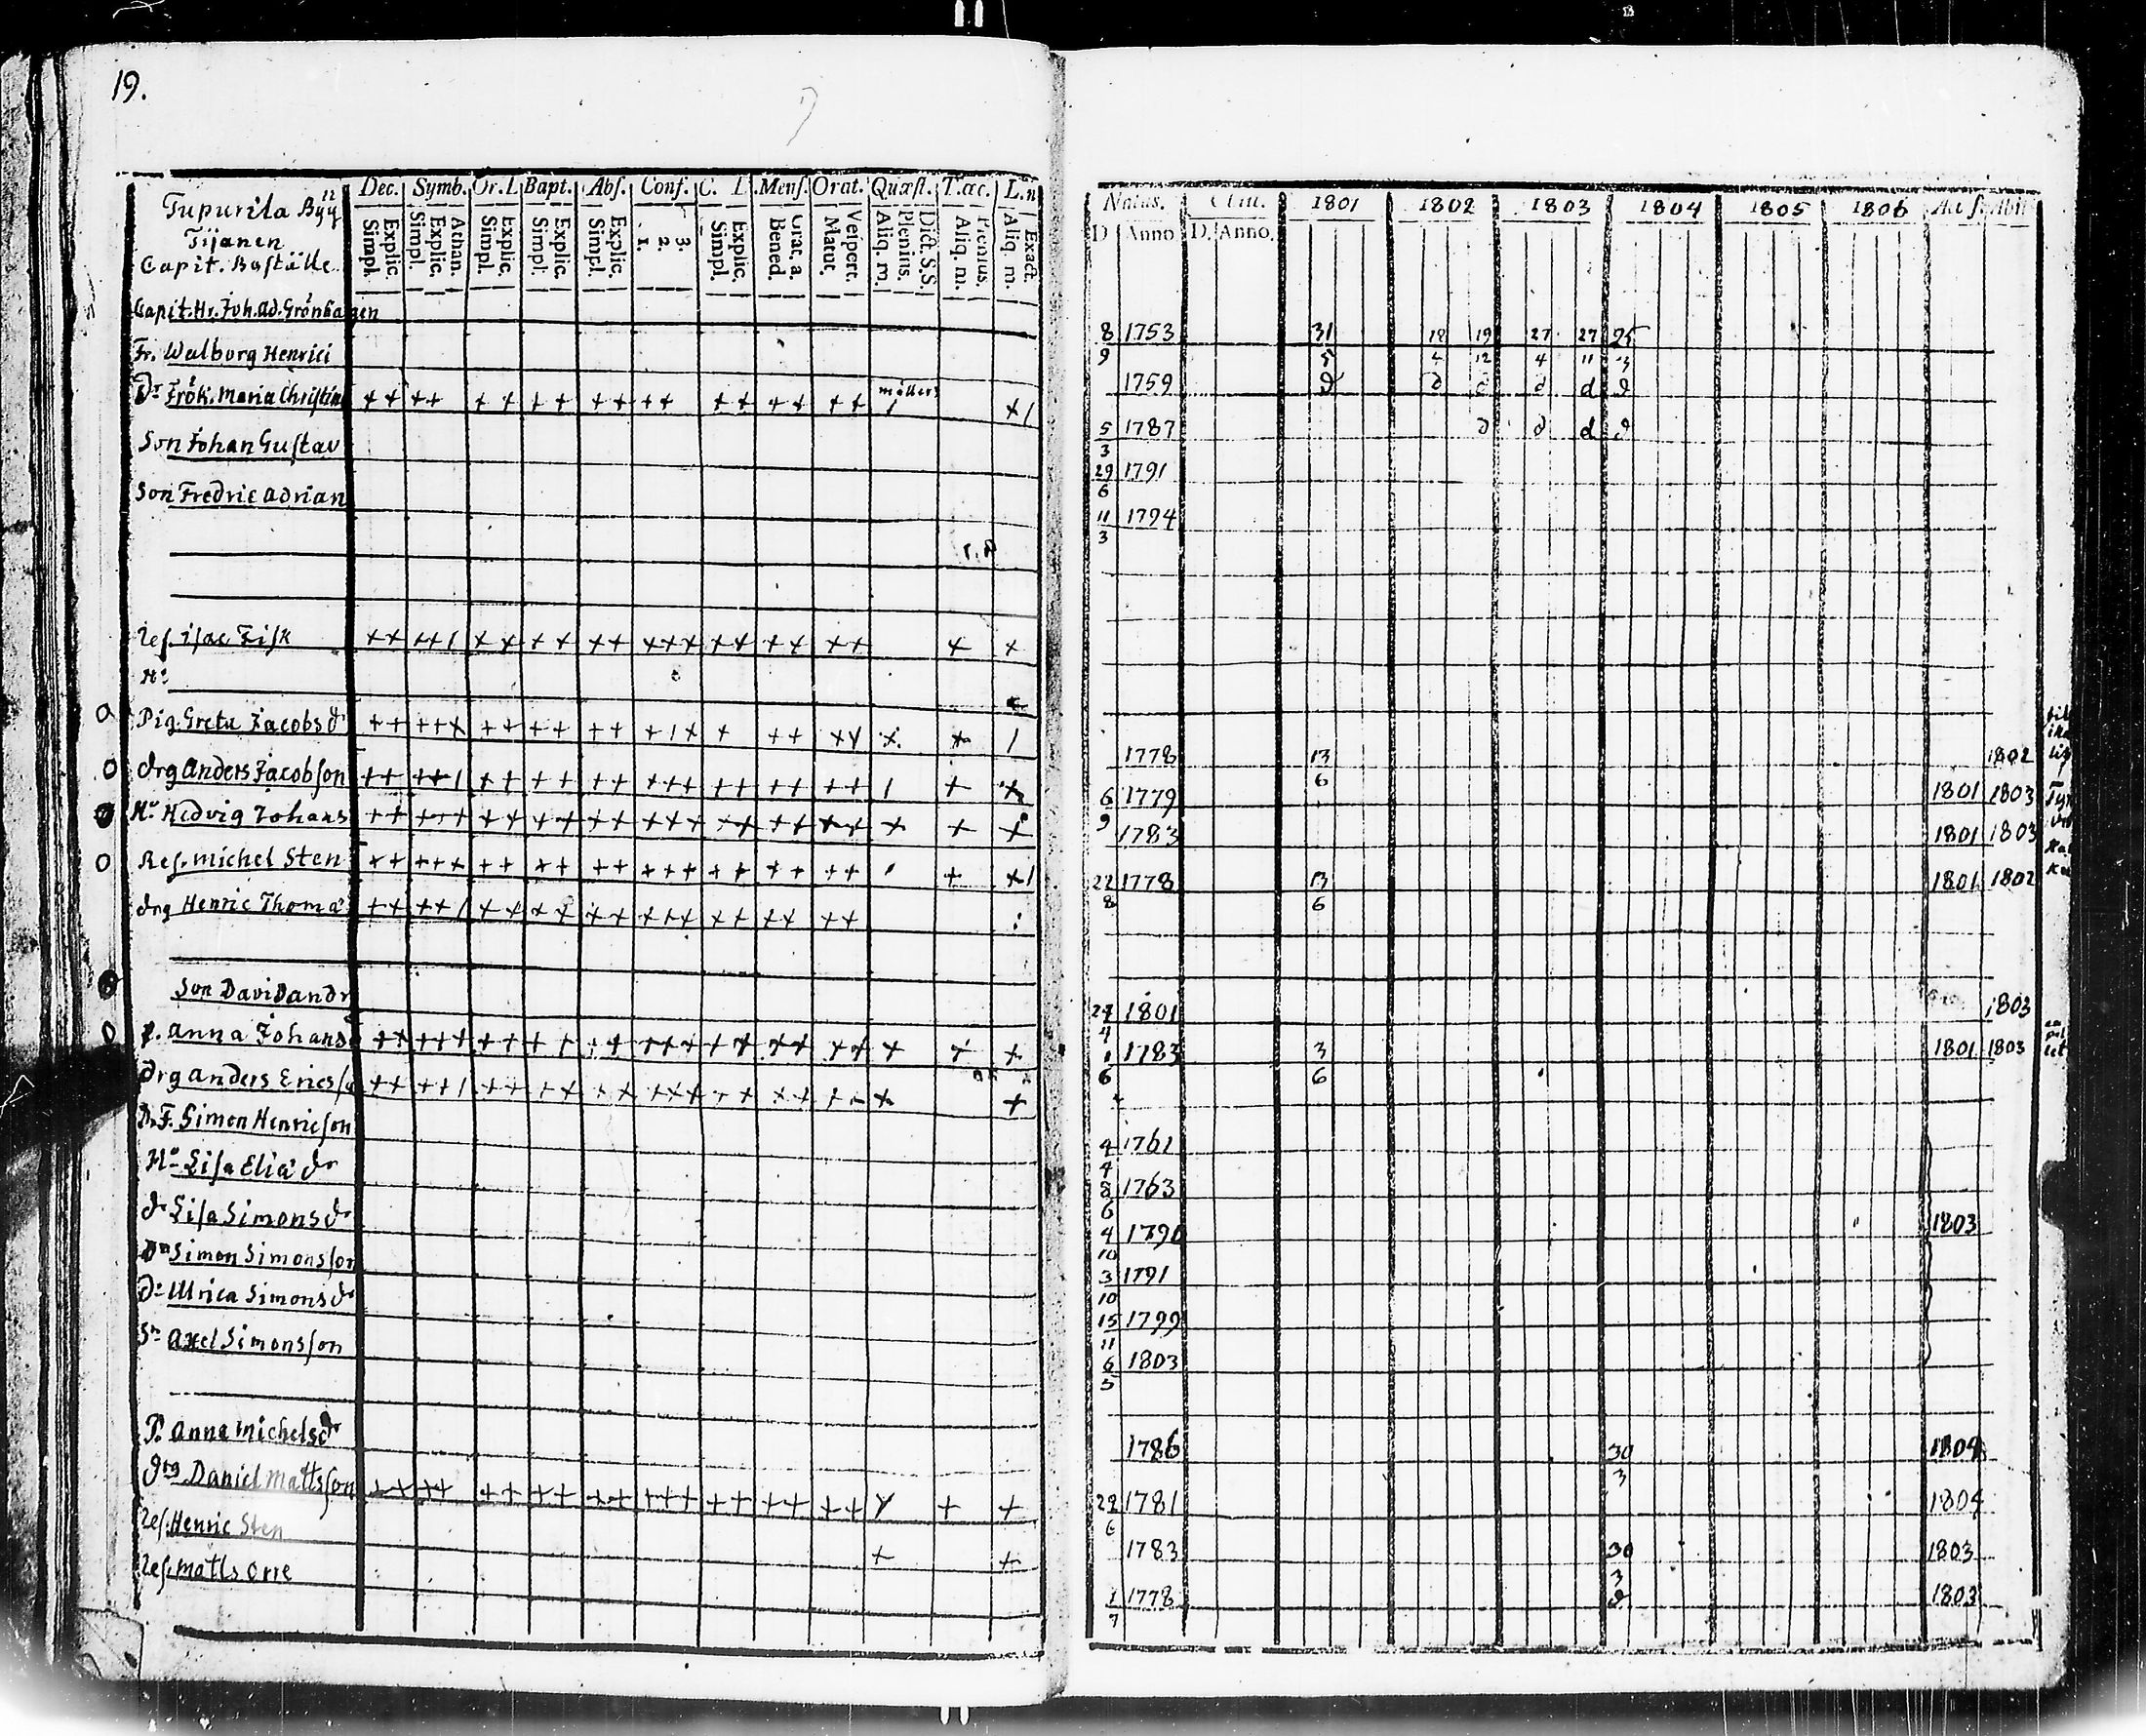 19.
Dec. Symb. Or. L Bapt. Abſ. Conf. C. L. Menſ. Orat. Quæſt. T. œc. L. n
Simpl. Explic. Simpl. Explic. Athan. Simpl. Explic. Simpl. Explic. Simpl. Explic. 1. 2. 3. Simpl. Explic. Bened. Grat. a. Matut. Veſpert. Aliq. m. Plenius. Dict. S. S. Aliq. m. Plenius. Aliq. m. Exact.
Natus. 1801 1802 1803 1804 1805 1806
D Anno D. Anno.
Tijanen
Capit. Boställe
Capit. Hr. Joh. Ad. Grönhagen 8 9 1753 31 5 18 4 19 12 27 4 27 11 25 3
Fr. Walborg Henrici 1759 d d d d d d
Dr Frök. Maria Christina ++ ++ ++ ++ ++ ++ ++ ++ ++ x/ 5 3 1787 d d d d
Son Johan Gustav 29 6 1791
Son Fredric Adrian 11 3 1794
Reſ. Isac Fisk ++ ++/ ++ ++ ++ +++ ++ ++ ++ + +
Hu
Pig. Greta Jacobs dr ++ +++ ++ ++ ++ +/+ + ++ ++ + + / 1778 13 6 1802
drg Anders Jacobsson ++ ++/ ++ ++ ++ +++ ++ ++ ++ / + + 6 9 1779 1801 1803
Hu Hedvig Johans ++ +++ ++ ++ ++ +++ ++ ++ ++ + + + 1783 1801 1803
Reſ. Michel Sten ++ +++ ++ ++ ++ +++ ++ ++ ++ + +/ 22 8 1778 13 6 1801 1802
drg Henric Thomæ ++ ++/ ++ ++ ++ +++ ++ ++ ++
Son David Andr 24 4 1801 1803
p. Anna Johans ++ +++ ++ ++ ++ +++ ++ ++ ++ + + + 1 6 1783 3 6 1801 1803
Drg Anders Ericsſ ++ ++/ ++ ++ ++ +++ ++ ++ ++ + +
D. F. Simon Henricsſon 4 4 1761
Hu Lisa Eliæ dr 8 6 1763
dr Lisa Simons dr 4 10 1790 1803
Simon Simonsſon 3 10 1791
dr Ulrica Simons dr 15 11 1799
Sn Axel Simonsſon 6 5 1803
P. Anna Michels dr 1786 30 3 1804
drg Daniel Mattsſon ++ ++ ++ ++ ++ +++ ++ ++ ++ + + + 22 6 1781 1804
Reſ. Henric Sten + + 1783 30 3 1803
Reſ. Matts Orre 1 7 1778 d 1803